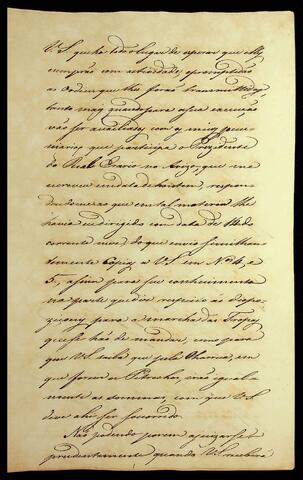 V. S. que ha todo lugar de esperar que elles
cumprão com actividade, e promptidão
as Ordens que lhes forão transmittidas,
tanto mais quando para a sua execução
vão ser auxiliados com os meios pecu-
niarios, que participa o Prezidente
do Real Erario no Avizo, que me
escreveo em data de hontem, respon-
dendo ao que em tal materia lhe
havia eu dirigido com data de 11 do
corrente mez, do que envio simultan-
eamente Copias a V. S. em Nos 4, e
5, assim para seu conhecimento
na parte que diz respeito ás dispo-
zições para a marcha das Tropas,
que se hão de mandar, como para
que V. S. saiba que pela Charrua, em
que forem os Petrechos, irão igual-
mente as sommas, com que V. S.
deve ahi ser soccorrido.
Não podendo porem ajuizar-se
prudentemente quando V. S. receberá